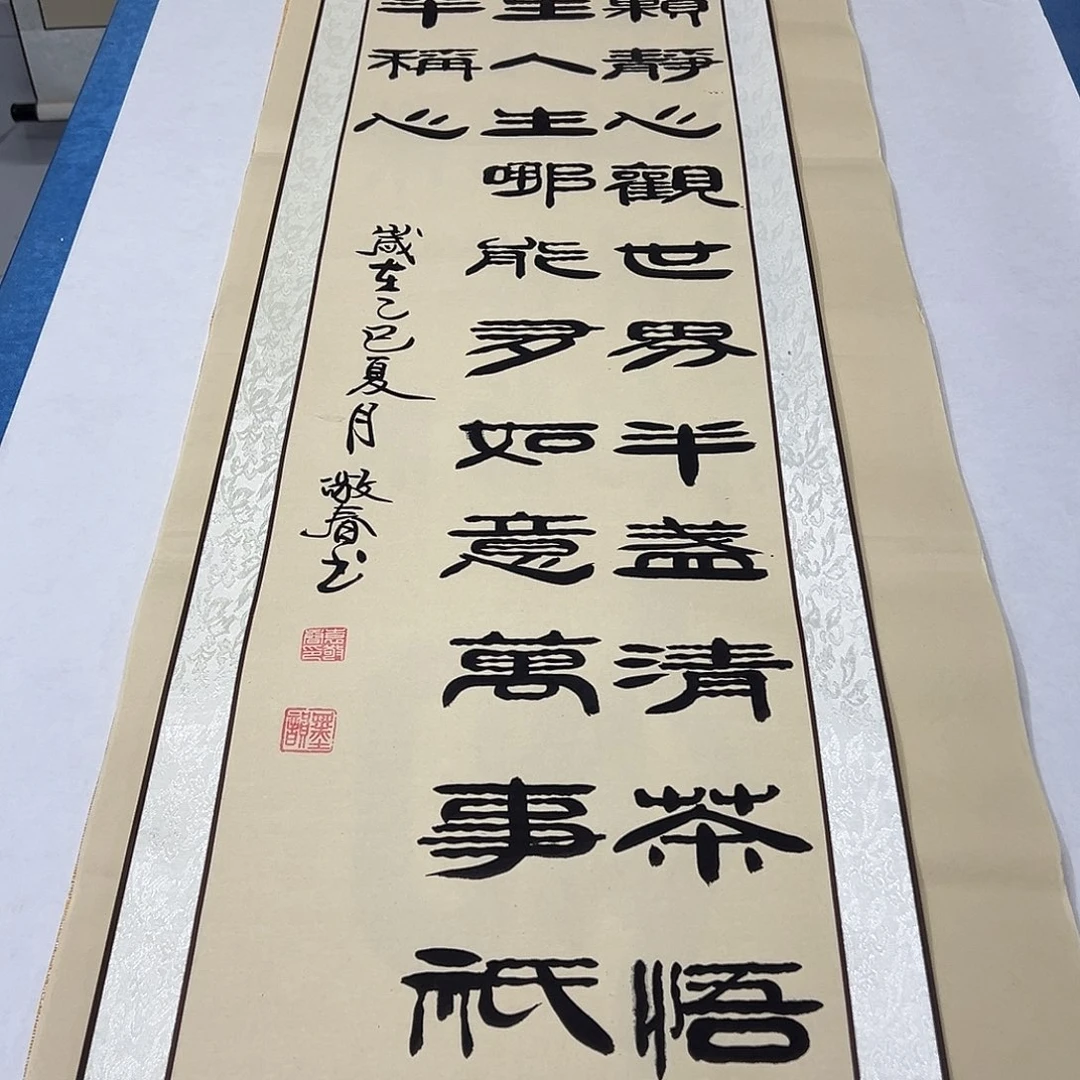 顆靜心觀世界半盞清茶悟
生人生哪能多如意萬事祇
半稱心
歲在乙巳夏月敬春书
墨韻